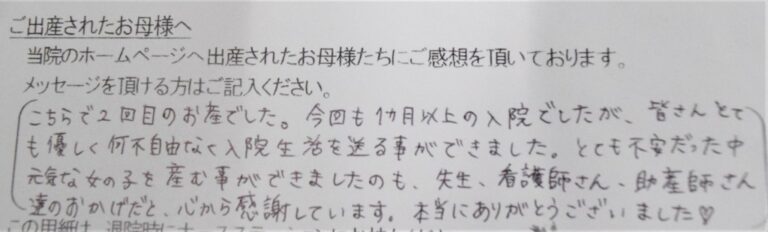 ご出産されたお母様へ
当院のホームページへ出産されたお母様たちにご感想を頂いております。
メッセージを頂ける方はご記入ください。
こちらで2回目のお産でした。今回も1カ月以上の入院でしたが、皆さんとて
も優しく何不自由なく入院生活を送る事ができました。とても不安だった中
元気な女の子を産む事ができましたのも、先生、看護師さん、助産師さん
達のおかげだと、心から感謝しています。本当にありがとうございました♡
この用紙は、退院時にナースステーションに